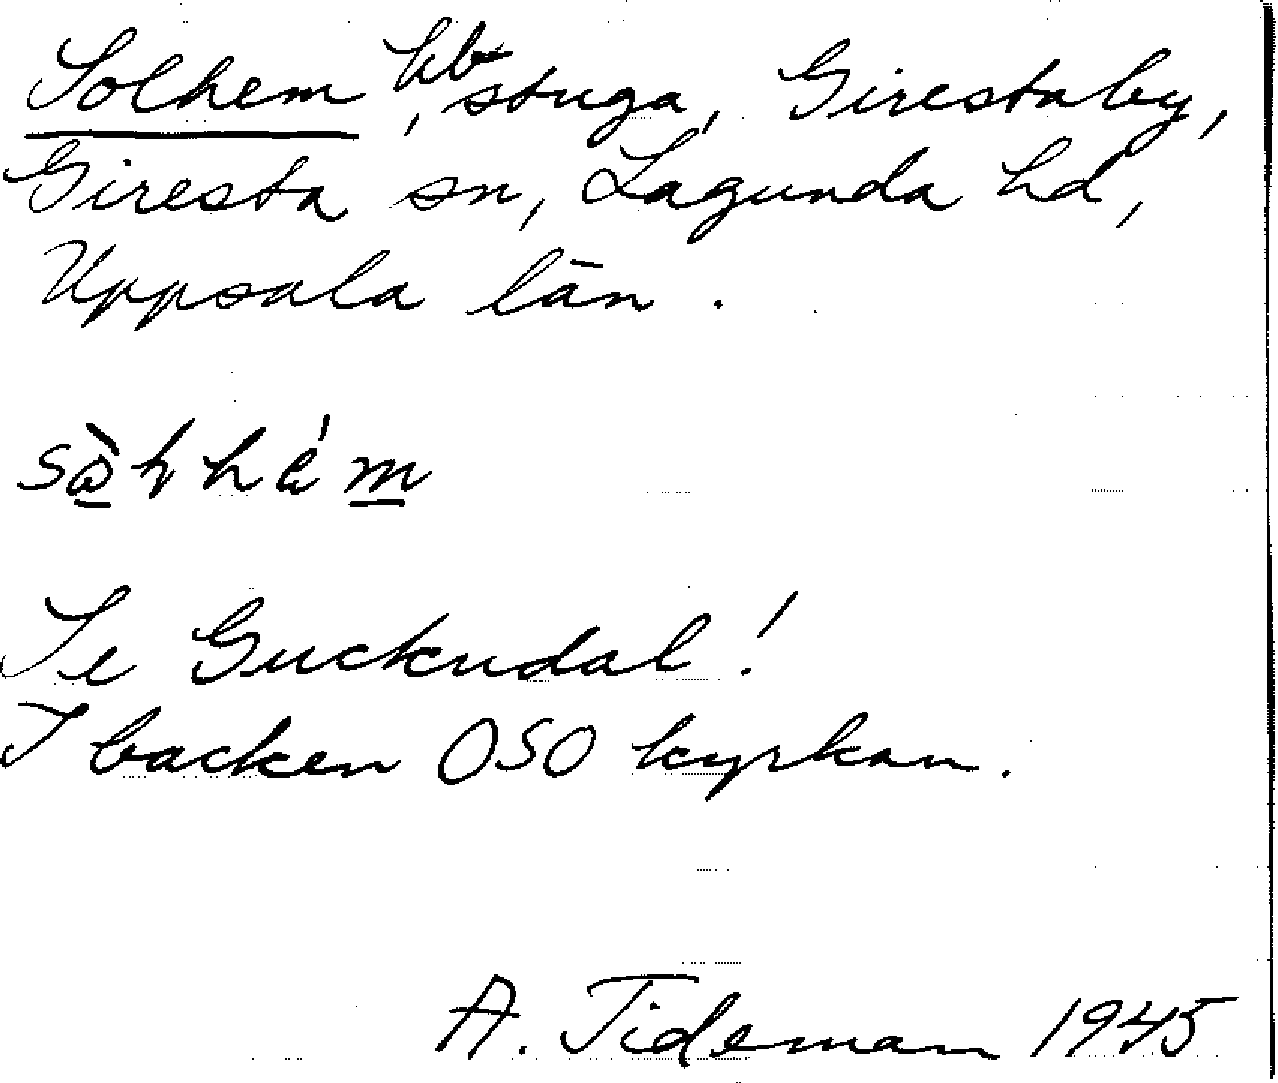 Solhem, kb stuga, Girestaby,
Giresta sn, Lagunda hd,
Uppsala län.
Se Guckudal!
I backen OSO kyrkan.
A. Tideman 1945